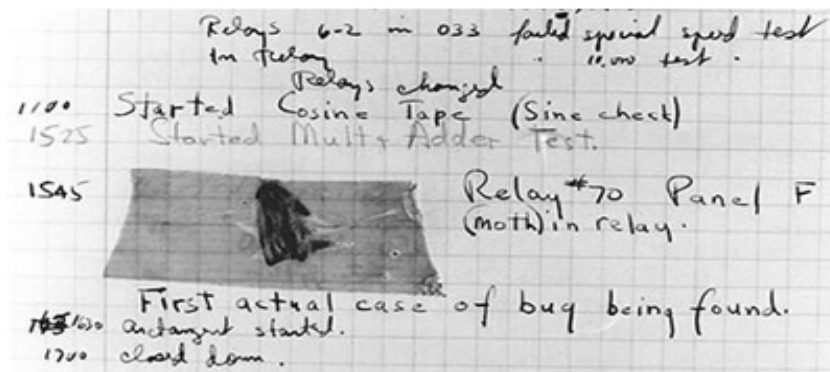 Relays 6-2 in 033 failed special speed test
In Relay " 10,000 test .
Relays changed
1100 Started Cosine Tape (Sine check)
1525 Started Mult + Adder Test.
1545 Relay #70 Panel F
(moth) in relay.
First actual case of bug being found.
1630 antangent started.
1700 closed down.